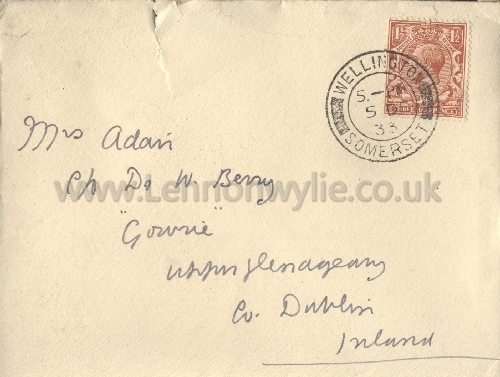 1½ 1½
WELLINGTON
33
SOMERSET
Mrs Adair
c/o Dr W. Berry
www.Lennonwylie.co.uk
"Gowrie"
Upper glenageary
Co. Dublin
Ireland